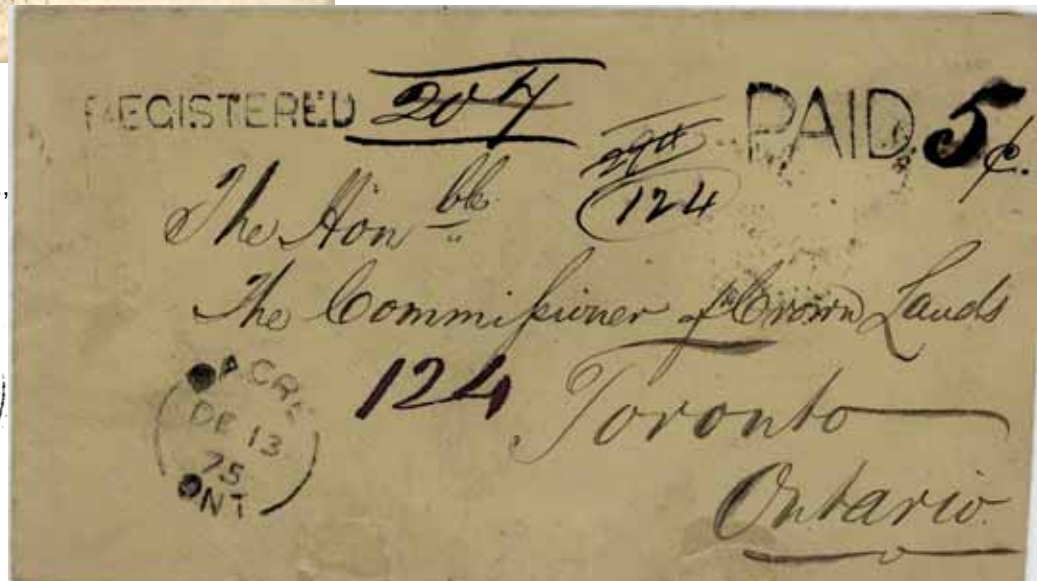 REGISTERED 204
PAID 5¢.
124
The Honble
The Commissioner of Crown Lands
124
Toronto
Ontario.
DACRE
DE 13
75
ONT